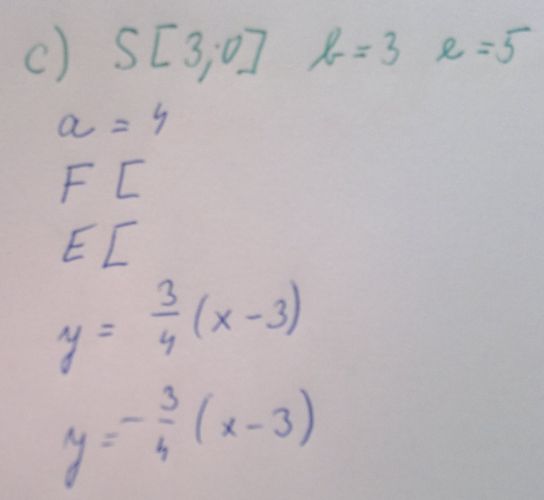 c) S[3;0] b=3 e=5
a = 4
F [
E [
y = 3/4 (x-3)
y = -3/4 (x-3)